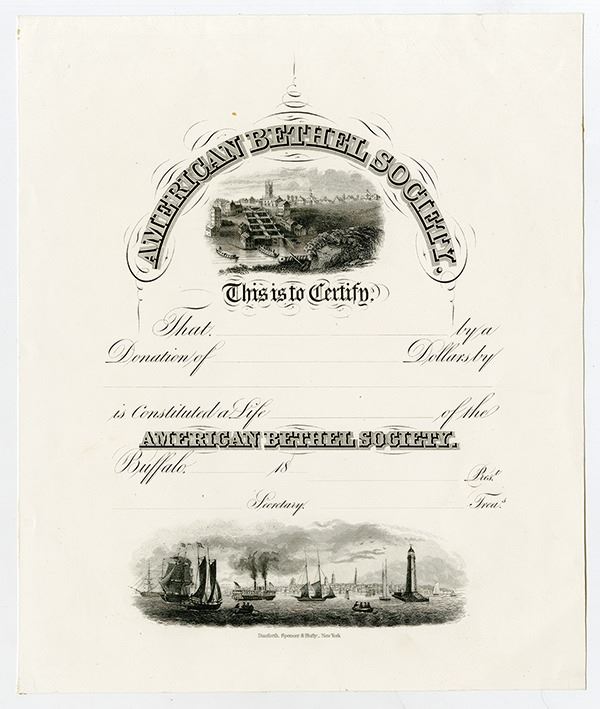 AMERICAN BETHEL SOCIETY.
This is to Certify.
That by a
Donation of Dollars, by
is Constituted a Life of the
AMERICAN BETHEL SOCIETY.
Buffalo. 18 Pres.t
Secretary. Trea.s
Danforth, Spencer & Hufty, New York